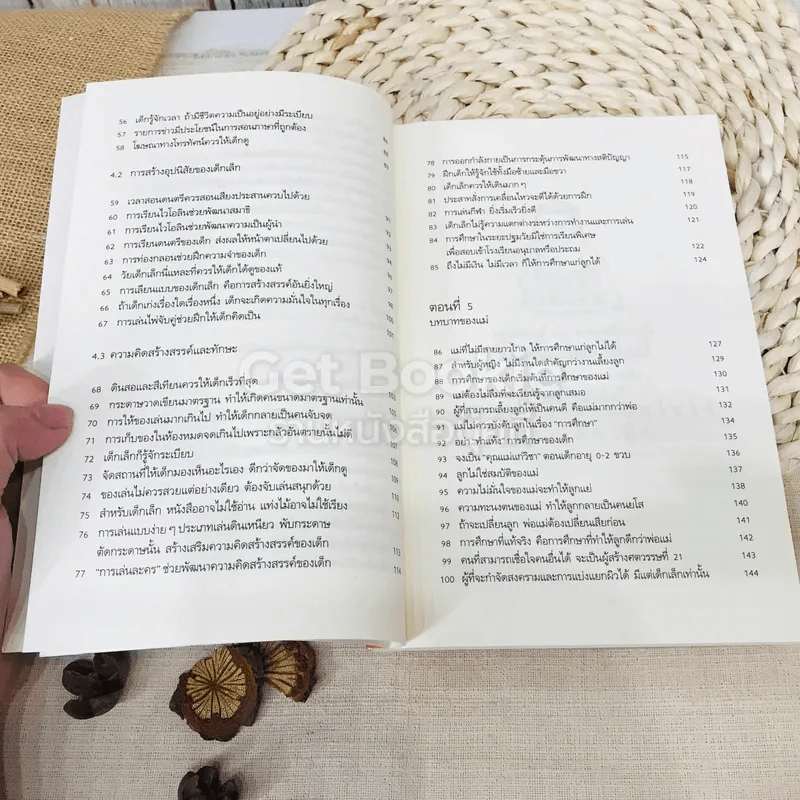 56 เด็กรู้จักเวลา ถ้ามีชีวิตความเป็นอยู่อย่างมีระเบียบ
57 รายการข่าวมีประโยชน์ในการสอนภาษาที่ถูกต้อง
58 โฆษณาทางโทรทัศน์ควรให้เด็กดู
4.2 การสร้างอุปนิสัยของเด็กเล็ก
59 เวลาสอนดนตรีควรสอนเสียงประสานควบไปด้วย
60 การเรียนไวโอลินช่วยพัฒนาสมาธิ 91
61 การเรียนไวโอลินช่วยพัฒนาความเป็นผู้นำ
62 การเรียนดนตรีของเด็ก ส่งผลให้หน้าตาเปลี่ยนไปด้วย
63 การท่องกลอนช่วยฝึกความจำของเด็ก
64 วัยเด็กเล็กนี่แหละที่ควรให้เด็กได้ดูของแท้
65 การเลียนแบบของเด็กเล็ก คือการสร้างสรรค์อันยิ่งใหญ่
66 ถ้าเด็กเก่งเรื่องใดเรื่องหนึ่ง เด็กจะเกิดความมั่นใจในทุกเรื่อง
67 การเล่นไพ่จับคู่ช่วยฝึกให้เด็กคิดเป็น
4.3 ความคิดสร้างสรรค์และทักษะ
68 ดินสอและสีเทียนควรให้เด็กเร็วที่สุด
69 กระดาษวาดเขียนมาตรฐาน ทำให้เกิดคนขนาดมาตรฐานเท่านั้น
70 การให้ของเล่นมากเกินไป ทำให้เด็กกลายเป็นคนจับจด 105
71 การเก็บของในห้องหมดจดเกินไปเพราะกลัวอันตรายนั้นไม่ดี
72 เด็กเล็กก็รู้จักระเบียบ 107
73 จัดสถานที่ให้เด็กมองเห็นอะไรเอง ดีกว่าจัดของมาให้เด็กดู 108
74 ของเล่นไม่ควรสวยแต่อย่างเดียว ต้องจับเล่นสนุกด้วย
75 สำหรับเด็กเล็ก หนังสืออาจไม่ใช้อ่าน แท่งไม้อาจไม่ใช้เรียง 110
76 การเล่นแบบง่าย ๆ ประเภทเล่นดินเหนียว พับกระดาษ
ตัดกระดาษนั้น สร้างเสริมความคิดสร้างสรรค์ของเด็ก 113
77 "การเล่นละคร" ช่วยพัฒนาความคิดสร้างสรรค์ของเด็ก 114
78 การออกกำลังกายเป็นการกระตุ้นการพัฒนาทางสติปัญญา 115
79 ฝึกเด็กให้รู้จักใช้ทั้งมือซ้ายและมือขวา 117
80 เด็กเล็กควรให้เดินมาก ๆ 118
81 ประสาทสั่งการเคลื่อนไหวจะดีได้ด้วยการฝึก 119
82 การเล่นกีฬา ยิ่งเริ่มเร็วยิ่งดี 120
83 เด็กเล็กไม่รู้ความแตกต่างระหว่างการทำงานและการเล่น 121
84 การศึกษาในระยะปฐมวัยมิใช่การเรียนพิเศษ
เพื่อสอบเข้าโรงเรียนอนุบาลหรือประถม 122
85 ถึงไม่มีเงิน ไม่มีเวลา ก็ให้การศึกษาแก่ลูกได้ 124
ตอนที่ 5
บทบาทของแม่
86 แม่ที่ไม่มีสายยาวไกล ให้การศึกษาแก่ลูกไม่ได้ 127
87 สำหรับผู้หญิง ไม่มีงานใดสำคัญกว่างานเลี้ยงลูก 129
88 การศึกษาของเด็กเริ่มต้นที่การศึกษาของแม่ 130
89 แม่ต้องไม่ลืมที่จะเรียนรู้จากลูกเสมอ 131
90 ผู้ที่สามารถเลี้ยงลูกให้เป็นคนดี คือแม่มากกว่าพ่อ 132
91 แม่ไม่ควรบังคับลูกในเรื่อง "การศึกษา"
92 อย่า "ทำแท้ง" การศึกษาของเด็ก 135
93 จงเป็น "คุณแม่แก่วิชา" ตอนเด็กอายุ 0-2 ขวบ 136
94 ลูกไม่ใช่สมบัติของแม่ 137
95 ความไม่มั่นใจของแม่จะทำให้ลูกแย่ 138
96 ความทะนงตนของแม่ ทำให้ลูกกลายเป็นคนยโส 140
97 ถ้าจะเปลี่ยนลูก พ่อแม่ต้องเปลี่ยนเสียก่อน 141
98 การศึกษาที่แท้จริง คือการศึกษาที่ทำให้ลูกดีกว่าพ่อแม่ 142
99 คนที่สามารถเชื่อใจคนอื่นได้ จะเป็นผู้สร้างศตวรรษที่ 21 143
100 ผู้ที่จะกำจัดสงครามและการแบ่งแยกผิวได้ มีแต่เด็กเล็กเท่านั้น 144